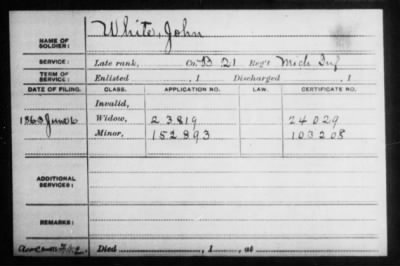 NAME OF SOLDIER: White, John
SERVICE: Late rank, Co. B 21 Reg't Mich Inf
TERM OF SERVICE: Enlisted , 1 Discharged , 1
DATE OF FILING. CLASS. APPLICATION NO. LAW. CERTIFICATE NO.
Invalid,
1863 June 6 Widow, 23.819 24029
Minor, 152893 103208
ADDITIONAL SERVICES:
REMARKS:
Died , 1 , at